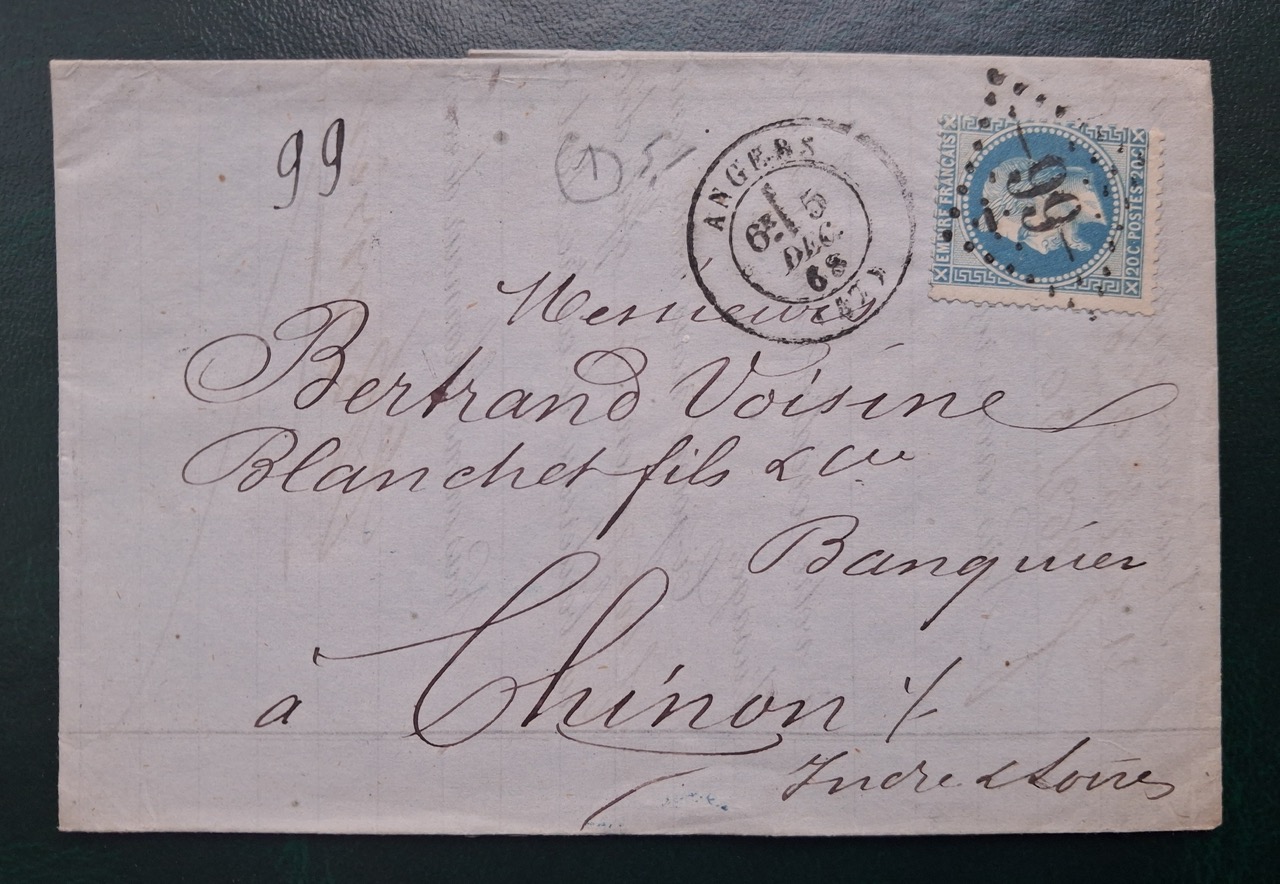 99
1 5
ANGERS
6E 5
DEC.
68
(47)
EMPIRE FRANCAIS
99
20 C. POSTES 20 C.
Messieurs
Bertrand Voisine
Blanchet fils & Cie
Banquier
à Chinon /.
Indre & Loire